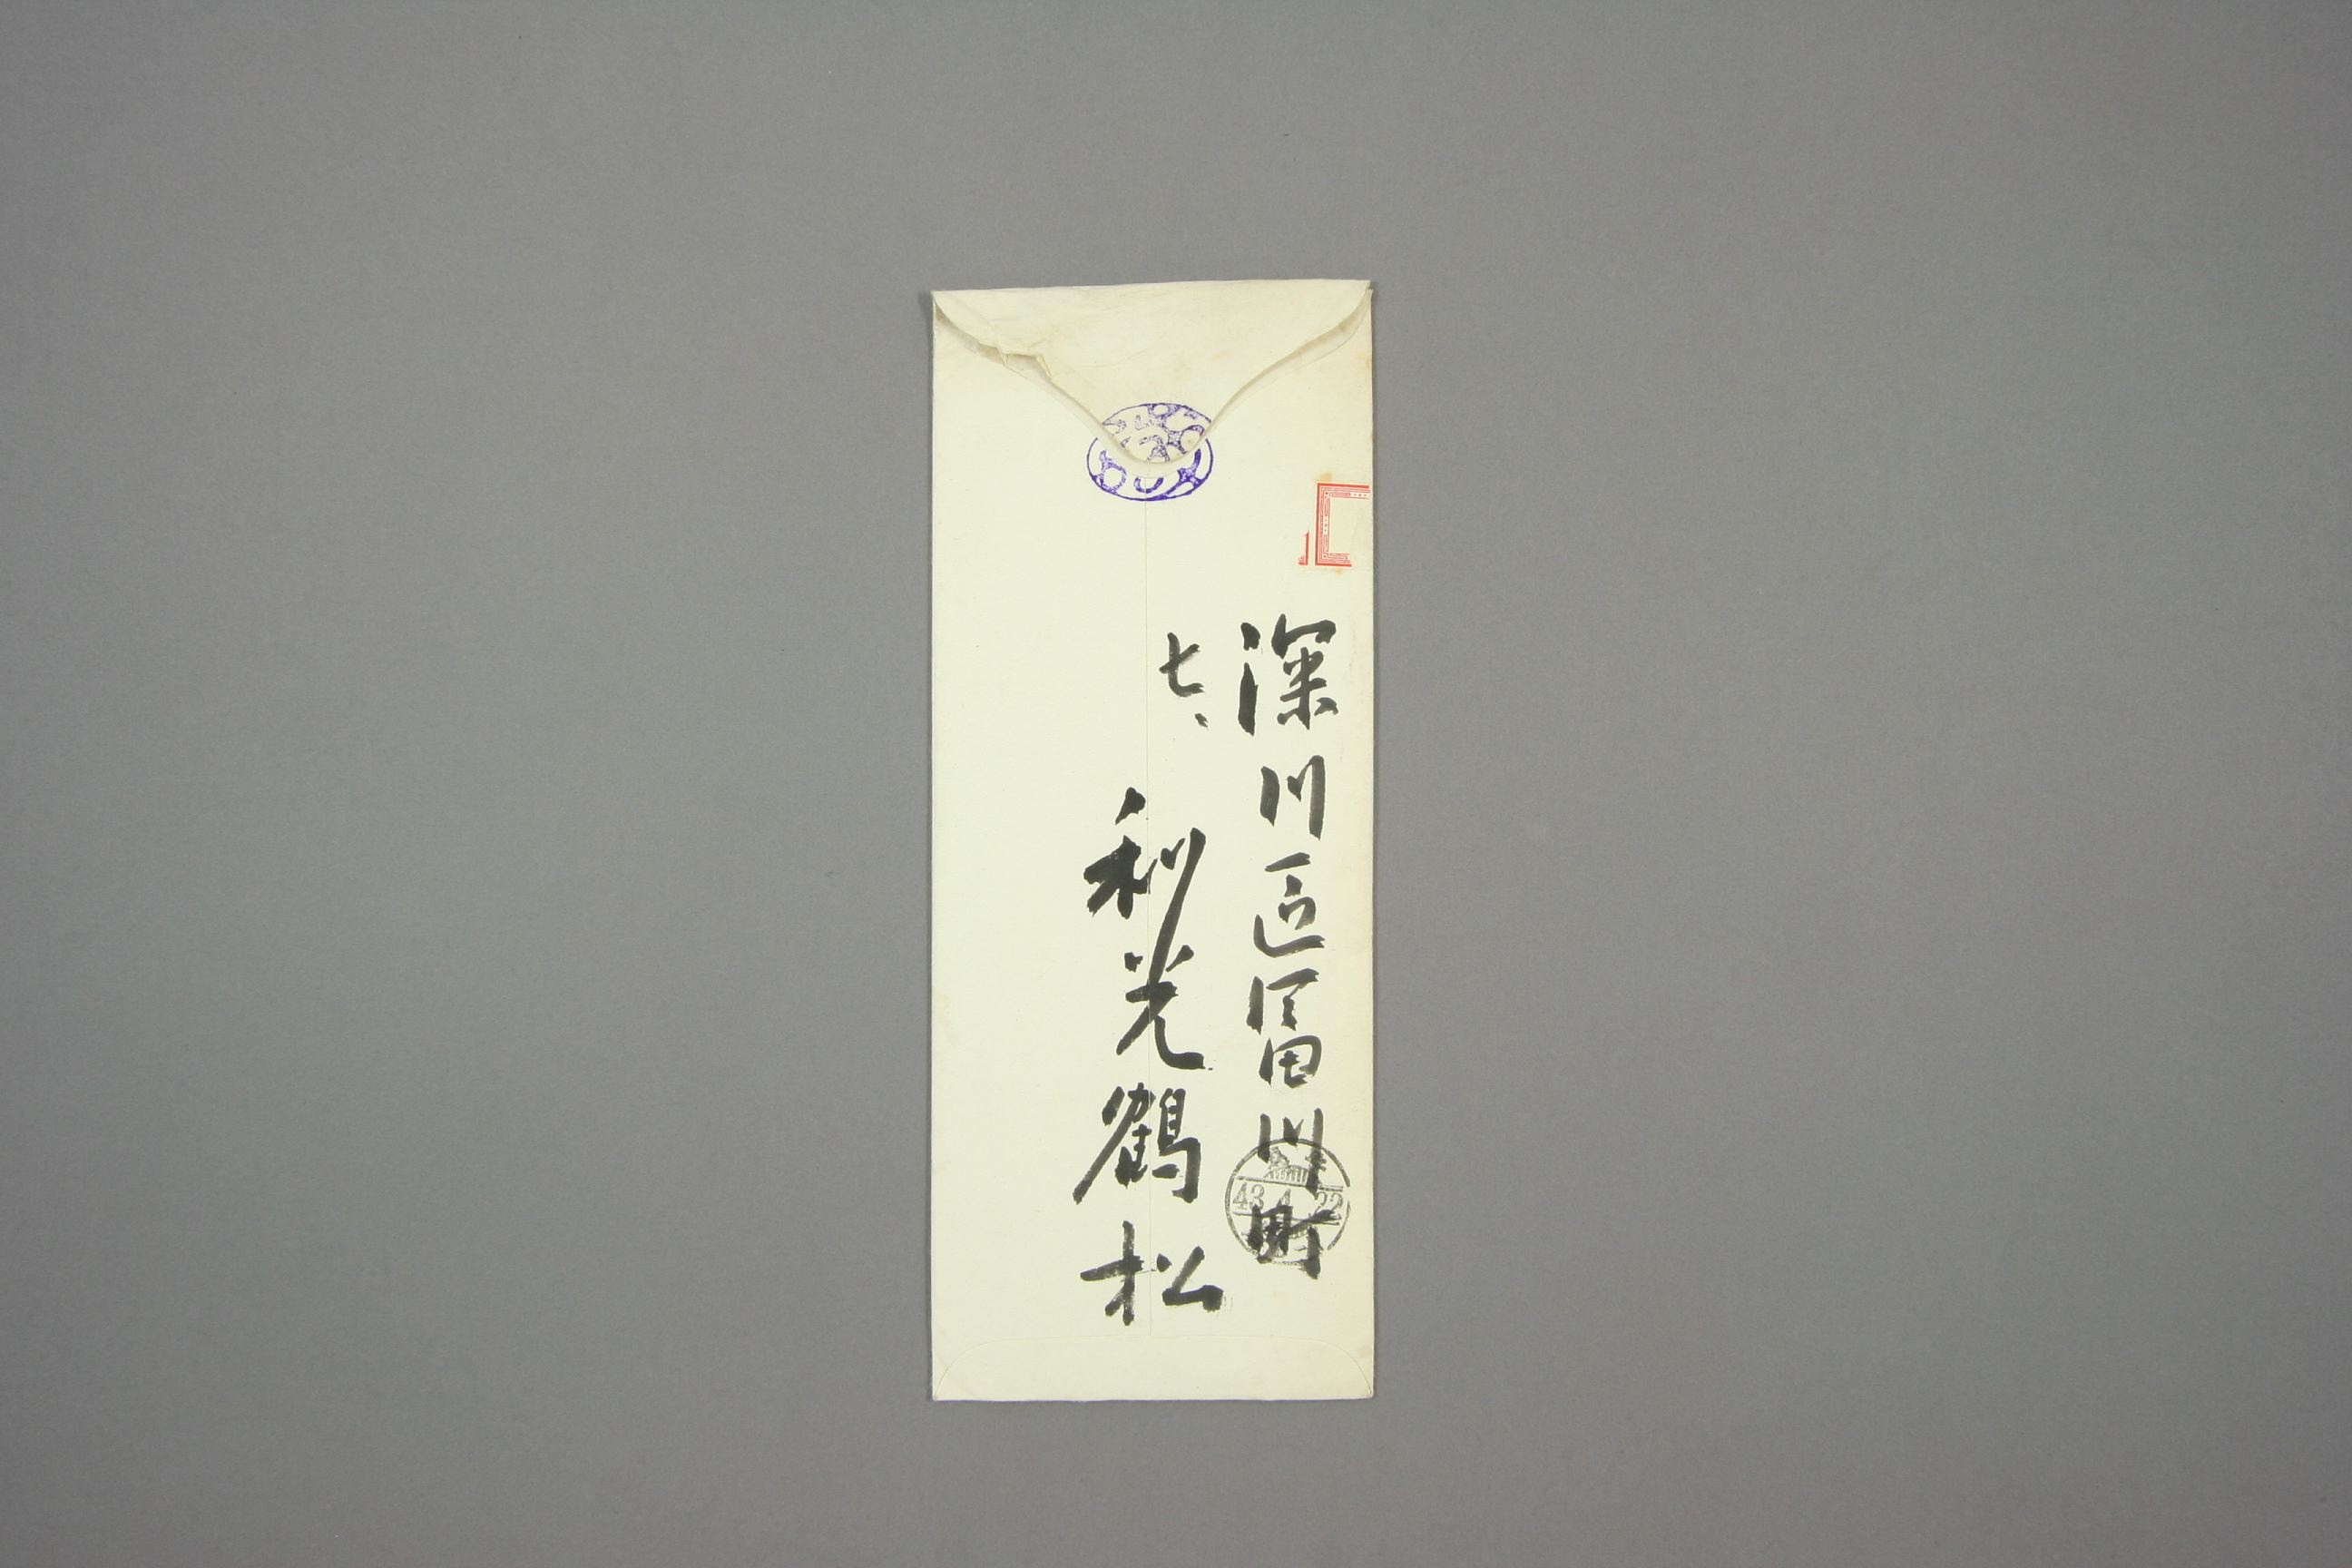 深川區冨川町
七、
利光鶴松
43 4 22